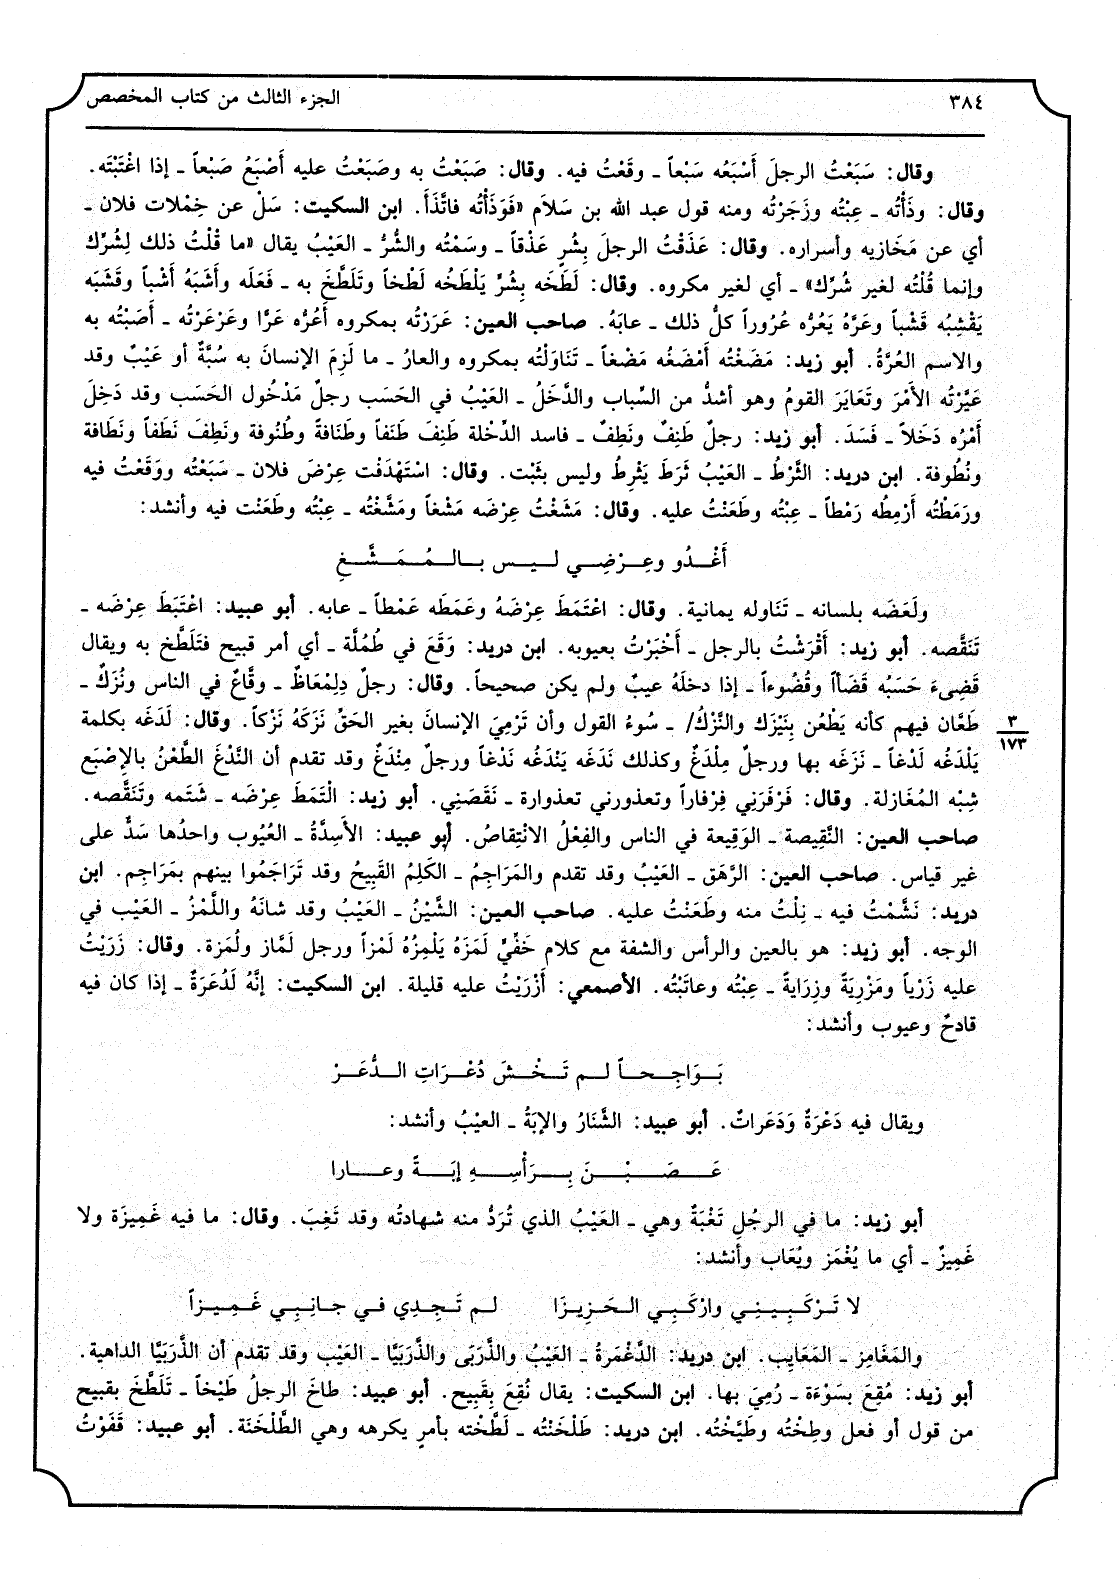 ٣٨٤
الجزء الثالث من كتاب المخصص
وقال: سَبَعْتُ الرجلَ أَسْبَعُه سَبْعاً ـ وقَعْتُ فيه. وقال: صَبَعْتُ به وصَبَعْتُ عليه أَصْبَعُ صَبْعاً ـ إذا اغْتَبْتَه.
وقال: وذَأْتُه ـ عِبْتُه وزَجَرْتُه ومنه قول عبد الله بن سَلاَم «فَوَذَأْتُه فاتَّذَأَ. ابن السكيت: سَلْ عن خِمْلات فلان ـ
أي عن مَخَازيه وأسراره. وقال: عَذَقْتُ الرجلَ بِشُرٍ عَذْقاً ـ وسَمْتُه والشُّرُّ ـ العَيْبُ يقال «ما قُلْتُ ذلك لِشُرِّك
وإنما قُلْتُه لغير شُرِّك» ـ أي لغير مكروه. وقال: لَطَخَه بِشُرٍّ يَلْطَخُه لَطْخاً وتَلَطَّخَ به ـ فَعَلَه وأَشَبَهُ أَشْباً وقَشَبَه
يَقْشِبُه قَشْباً وعَرَّهُ يَعُرُّه عُرُوراً كلُّ ذلك ـ عابَهُ. صاحب العين: عَرَرْتُه بمكروه أَعُرُّه عَرًّا وعَرْعَرْتُه ـ أَصَبْتُه به
والاسم العُرَّةُ. أبو زيد: مَضَغْتُه أَمْضَغُه مَضْغاً ـ تَنَاوَلْتُه بمكروه والعارُ ـ ما لَزِمَ الإنسانَ به سُبَّةٌ أو عَيْبٌ وقد
عَيَّرْتُه الأَمْرَ وتَعَايَرَ القومُ وهو أشدُّ من السِّباب والدَّخَلُ ـ العَيْبُ في الحَسَب رجلٌ مَدْخُول الحَسَب وقد دَخِلَ
أَمْرُه دَخَلاً ـ فَسَدَ. أبو زيد: رجلٌ طَنِفٌ ونَطِفٌ ـ فاسد الدِّخْلة طَنِفَ طَنَفاً وطَنَافةً وطُنُوفة ونَطِفَ نَطَفاً ونَطَافة
ونُطُوفة. ابن دريد: الثَّرْطُ ـ العَيْبُ ثَرَطَ يَثْرِطُ وليس بثَبْت. وقال: اسْتَهْدَفْت عِرْضَ فلان ـ سَبَعْتُه ووَقَعْتُ فيه
ورَمَطْتُه أَرْمِطُه رَمْطاً ـ عِبْتُه وطَعَنْتُ عليه. وقال: مَشَغْتُ عِرْضَه مَشْغاً ومَشَّغْتُه ـ عِبْتُه وطَعَنْت فيه وأنشد:
أَغْدُو وعِرْضِي ليس بالمُمَشَّغِ
ولَعَضَه بلسانه ـ تَنَاوله يمانية. وقال: اغْتَمَطَ عِرْضَهُ وغَمَطَه غَمْطاً ـ عابه. أبو عبيد: اعْتَبَطَ عِرْضَه ـ
تَنَقَّصه. أبو زيد: أَقْرَشْتُ بالرجل ـ أَخْبَرْتُ بعيوبه. ابن دريد: وَقَعَ في طُمُلَّة ـ أي أمر قبيح فتَلَطَّخ به ويقال
قَضِىءَ حَسَبُه قَضَأاً وقُضُوءاً ـ إذا دخلَهُ عيبٌ ولم يكن صحيحاً. وقال: رجلٌ دِلِمْعَاظٌ ـ وقَّاعٌ في الناس ونُزَكٌ ـ
طَعَّان فيهم كأنه يَطْعُن بِنَيْزَك والنَّزْكُ/ ـ سُوءُ القول وأن تَرْمِيَ الإنسانَ بغير الحَقِّ نَزَكَهُ نَزْكاً. وقال: لَدَغَه بكلمة
٣
١٧٣
يَلْدَغُه لَدْغاً ـ نَزَغَه بها ورجلٌ مِلْدَغٌ وكذلك نَدَغَه يَنْدَغُه نَدْغاً ورجلٌ مِنْدَغٌ وقد تقدم أن النَّدْغَ الطَّعْنُ بالإِصْبَع
شِبْه المُغَازلة. وقال: فَرْفَرَنِي فِرْفاراً وتعذورني تعذوارة ـ نَقَصَنِي. أبو زيد: الْتَمَطَ عِرْضَه ـ شَتَمه وتَنَقَّصه.
صاحب العين: النَّقِيصة ـ الوَقِيعة في الناس والفِعْلُ الانْتِقاصُ. أبو عبيد: الأَسِدَّةُ ـ العُيُوب واحدُها سَدٌّ على
غير قياس. صاحب العين: الرَّهَق ـ العَيْبُ وقد تقدم والمَرَاجِمُ ـ الكَلِمُ القَبِيحُ وقد تَرَاجَمُوا بينهم بمَرَاجِم. ابن
دريد: نَشَّمْتُ فيه ـ نِلْتُ منه وطَعَنْتُ عليه. صاحب العين: الشَّيْنُ ـ العَيْبُ وقد شانَهُ واللَّمْزُ ـ العَيْب في
الوجه. أبو زيد: هو بالعين والرأس والشفة مع كلام خَفِيٍّ لَمَزَهُ يَلْمِزُهُ لَمْزاً ورجل لَمَّاز ولُمَزة. وقال: زَرَيْتُ
عليه زَرْياً ومَزْرِيَةً وزِرَايةً ـ عِبْتُه وعاتَبْتُه. الأصمعي: أَزْرَيْتُ عليه قليلة. ابن السكيت: إنَّهُ لَدُعَرَةٌ ـ إذا كان فيه
قادحٌ وعيوب وأنشد:
بَوَاجِحاً لم تَخْشَ دُعْرَاتِ الدُّعَرْ
ويقال فيه دَعْرَةٌ وَدَعَراتٌ. أبو عبيد: الشَّنَارُ والإبَةُ ـ العيْبُ وأنشد:
عَصَبْنَ بِرَأْسِهِ إبَةً وعارا
أبو زيد: ما في الرجُلِ تَغْبَةٌ وهي ـ العَيْبُ الذي تُرَدُّ منه شهادتُه وقد تَغِبَ. وقال: ما فيه غَمِيزَة ولا
غَمِيزٌ ـ أي ما يُغْمَز ويُعَاب وأنشد:
لا تَرْكَبِينِي وارْكَبِي الحَزِيزَا لم تَجِدِي في جانِبِي غَمِيزاً
والمَغَامِز ـ المَعَايِب. ابن دريد: الدَّغْمَرةُ ـ العَيْبُ والذَّرَبَى والذَّرَبَيَّا ـ العَيْب وقد تقدم أن الذَّرَبَيَّا الداهية.
أبو زيد: مُقِعَ بسَوْءَة ـ رُمِيَ بها. ابن السكيت: يقال نُقِعَ بِقَبِيح. أبو عبيد: طاخَ الرجلُ طَيْخاً ـ تَلَطَّخَ بقبيح
من قول أو فعل وطِخْتُه وطَيَّخْتُه. ابن دريد: طَلْخَنْتُه ـ لَطَّخْته بأمرٍ يكرهه وهي الطَّلْخَنَة. أبو عبيد: قَفَوْتُ